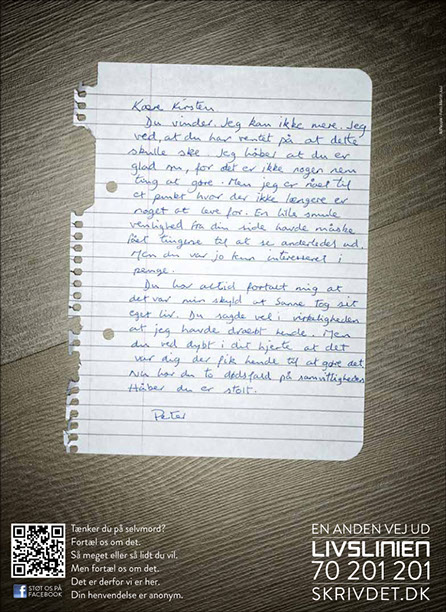 Kære Kirsten
Du vinder. Jeg kan ikke mere. Jeg
ved, at du har ventet på at dette
skulle ske. Jeg håber at du er
glad nu, for det er ikke nogen nem
ting at gøre. Men jeg er nået til
et punkt hvor der ikke længere er
noget at leve for. En lille smule
venlighed fra din side havde måske
fået tingene til at se anderledes ud.
Men du var jo kun interesseret i
penge.
Du har altid fortalt mig at
det var min skyld at Sanne tog sit
eget liv. Du sagde vel i virkeligheden
at jeg havde dræbt hende. Men
du ved dybt i dit hjerte at det
var dig der fik hende til at gøre det
Nu har du to dødsfald på samvittigheden
Håber du er stolt.
Peter
Tænker du på selvmord?
Fortæl os om det.
Så meget eller så lidt du vil.
Men fortæl os om det.
Det er derfor vi er her.
Din henvendelse er anonym.
STØT OS PÅ
FACEBOOK
EN ANDEN VEJ UD
LIVSLINIEN
70 201 201
SKRIVDET.DK